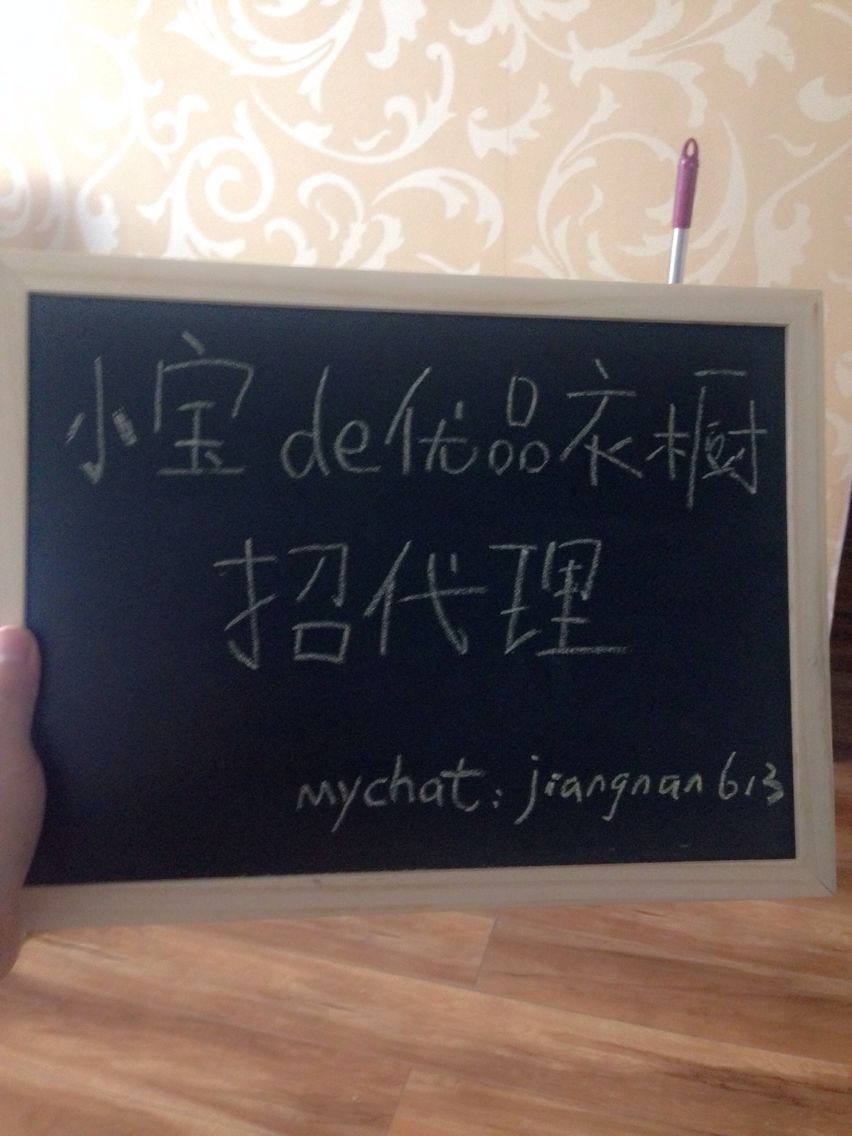 小宝de优品衣橱
招代理
mychat:jiangnan613